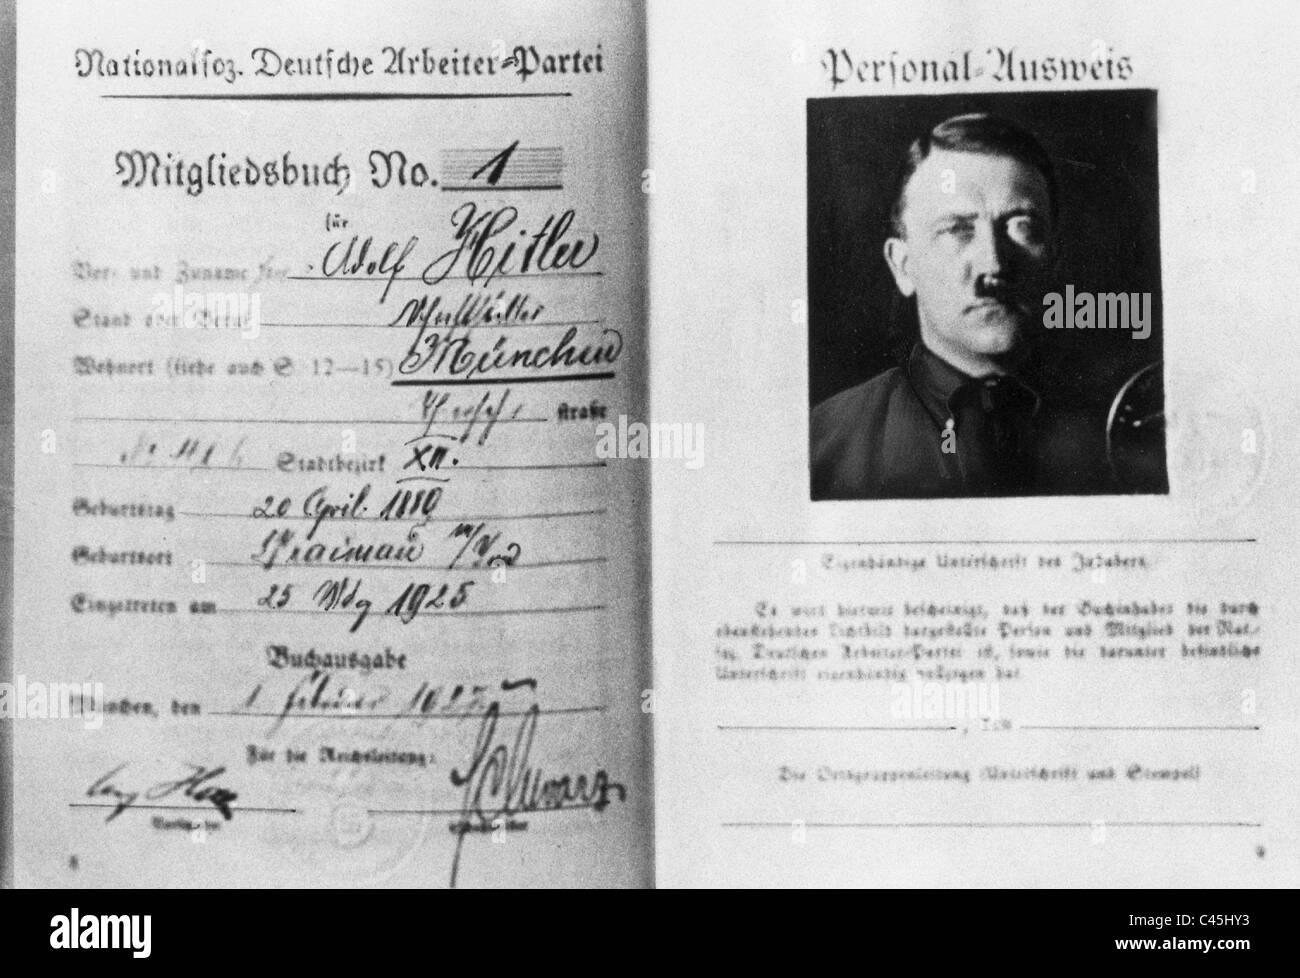 Nationalsoz. Deutsche Arbeiter-Partei
Mitgliedsbuch No. 1
für
Vor- und Zuname Adolf Hitler
Stand oder Beruf Schriftsteller
Wohnort (siehe auch S. 12—15) München
Thiersch straße
Stadtbezirk XII.
Geburtstag 20 April 1889
Geburtsort Braunau
Eingetreten am 25 1925
Buchausgabe
München, den 1 Februar 1927
Für die Reichsleitung:
Schwarz
Personal-Ausweis
Eigenhändige Unterschrift des Inhabers
Es wird hiermit bescheinigt, daß der Buchinhaber die durch
obenstehendes Lichtbild dargestellte Person und Mitglied der Nat.-
soz. Deutschen Arbeiter-Partei ist, sowie die darunter befindliche
Unterschrift eigenhändig vollzogen hat.
, den
Die Ortsgruppenleitung (Unterschrift und Stempel)
alamy
Image ID: C45HY3
www.alamy.com